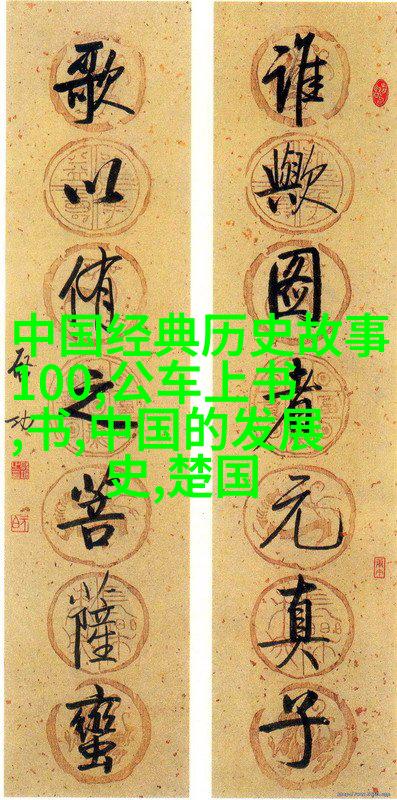 谁歟图者元真子
歌以侑之菩薩蠻
啓功
中国经典历史故事
100,公车上书
,书,中国的发展
史,楚国